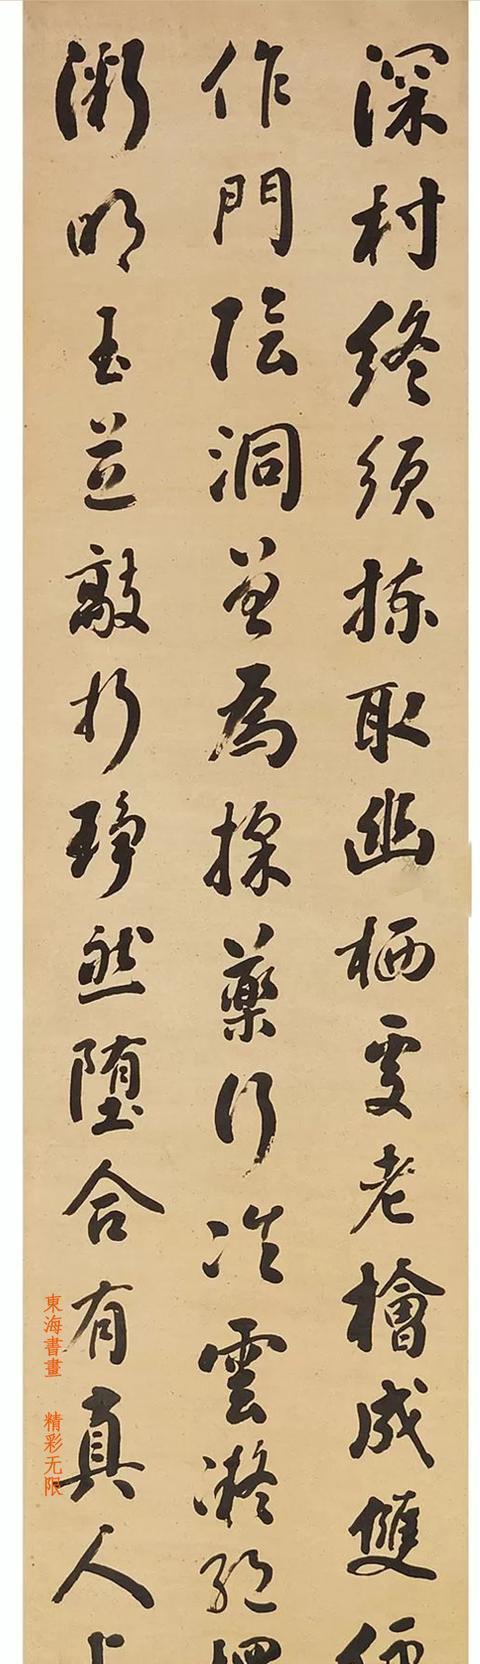 深村終須揀取幽栖處老檜成雙
作門陰洞並為採藥行冷雲凝
漸明玉並敲折琤然堕合有真人
東海書畫
精彩无限